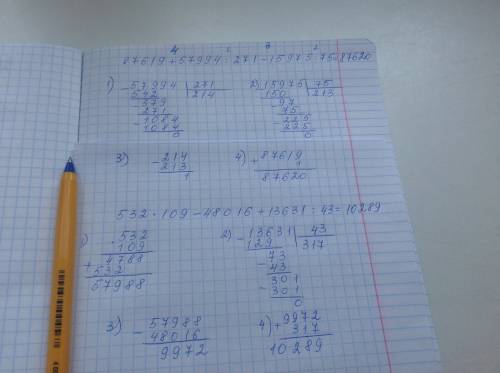 4 1 3 2
87619 + 57994 : 271 - 15975 : 75 = 87620
1) - 57994 | 271
542 214
- 379
271
- 1084
1084
0
2) - 15975 | 75
150 213
- 97
75
- 225
225
0
3) - 214
213
1
4) + 87619
1
87620
532 · 109 - 48016 + 13631 : 43 = 10289
1) · 532
109
+ 4788
532
57988
2) - 13631 | 43
129 317
- 73
43
- 301
301
0
3) - 57988
48016
9972
4) + 9972
317
10289